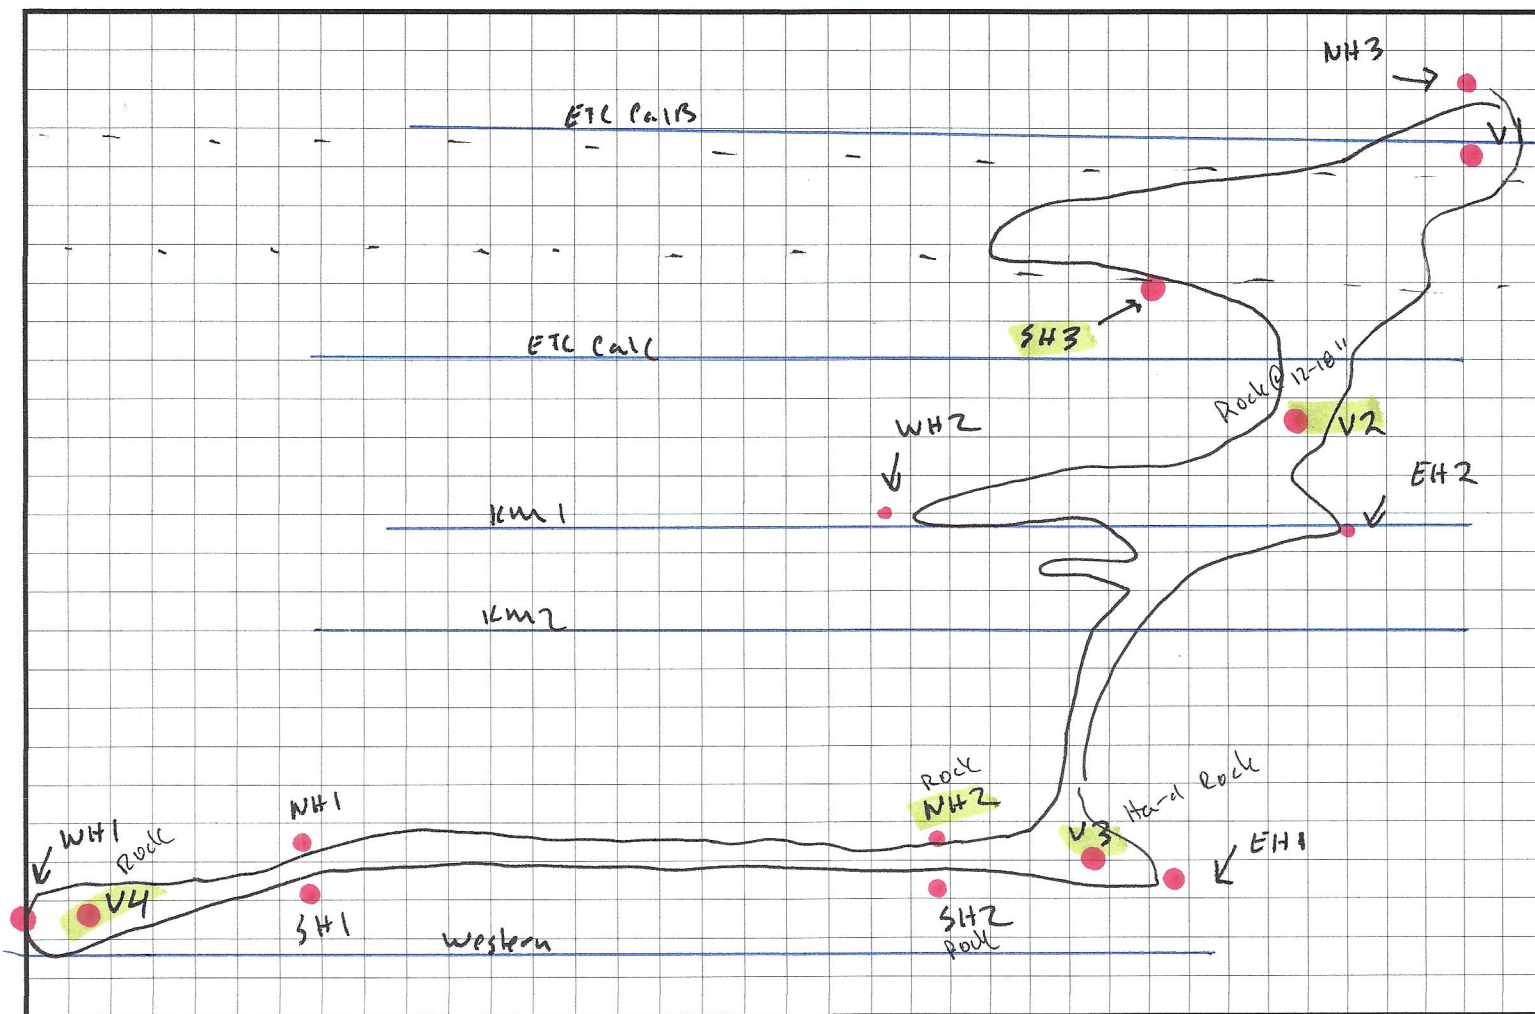 NH3
ETC Cal B
V1
SH3
ETC Cal C
Rock @ 12-18"
V2
WH2
EH2
KM1
KM2
Rock
NH2
Hard Rock
V3
NH1
WH1
Rock
EH1
V4
SH1
SH2
Rock
Western